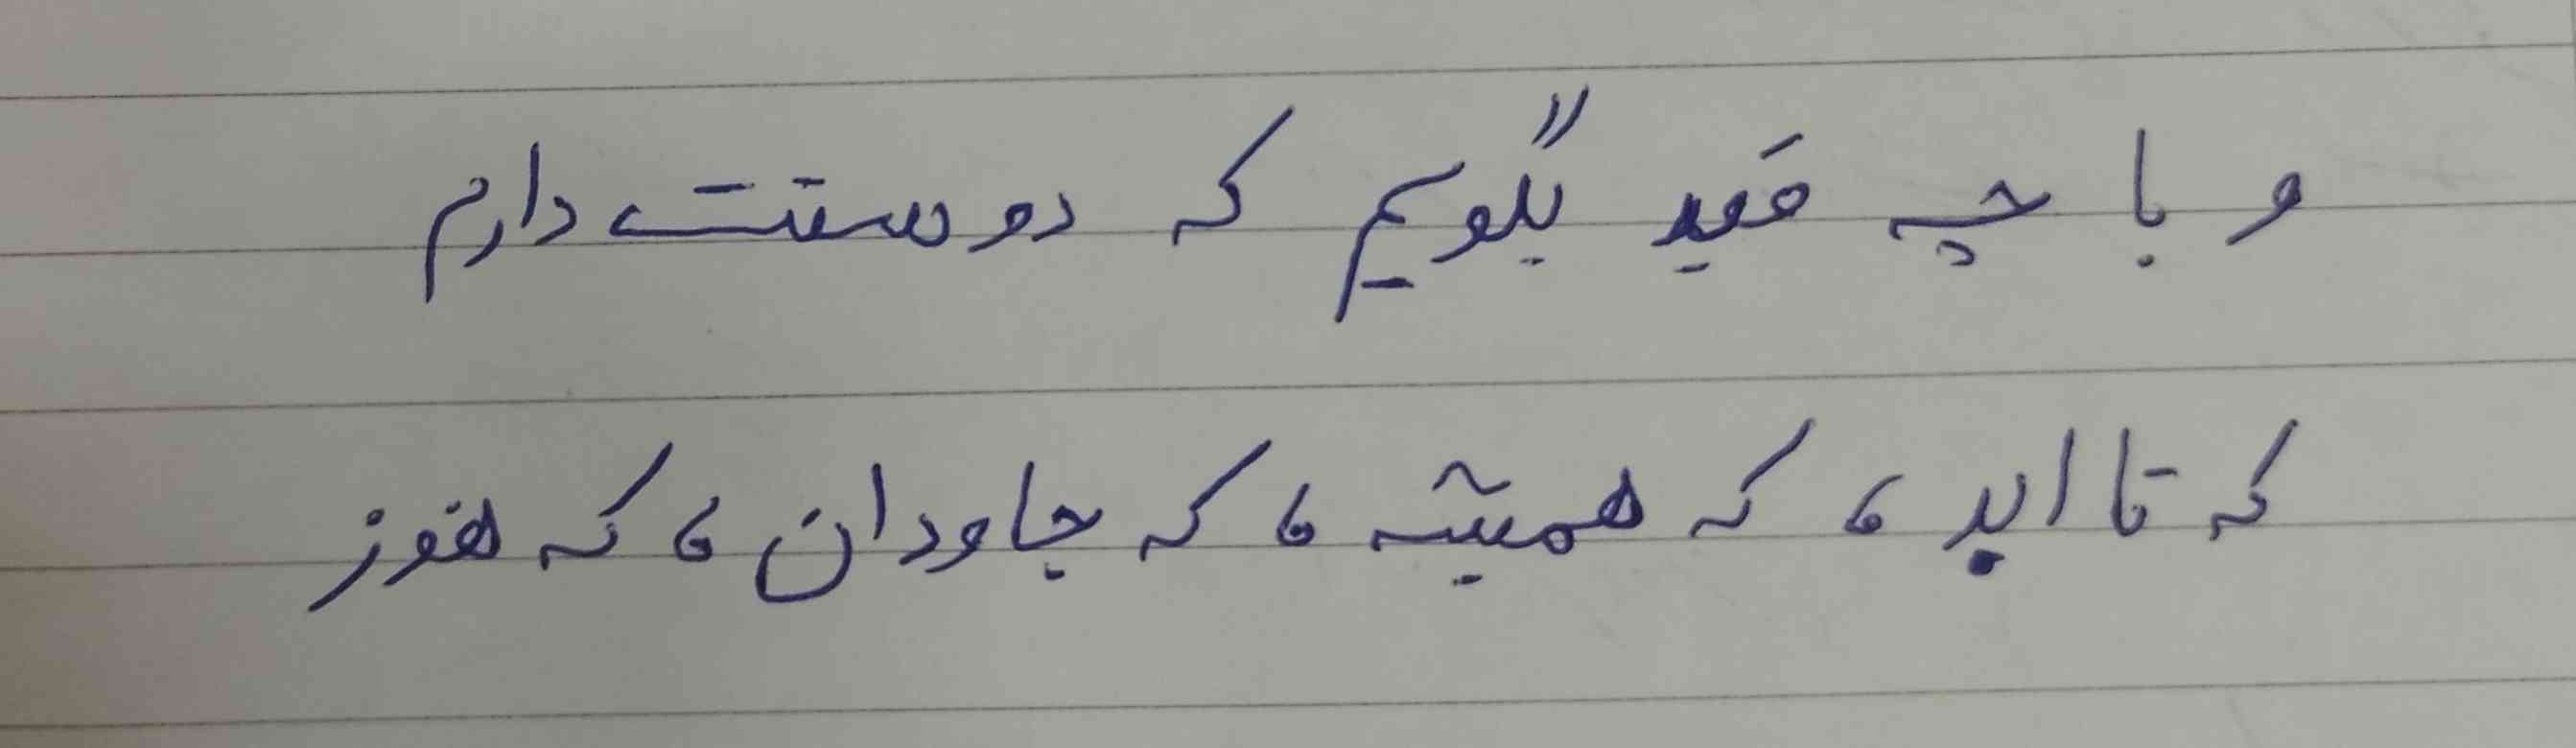 و با چه قَید بگویم که دوستت دارم
که تا ابد ، که همیشه ، که جاودان ، که هنوز